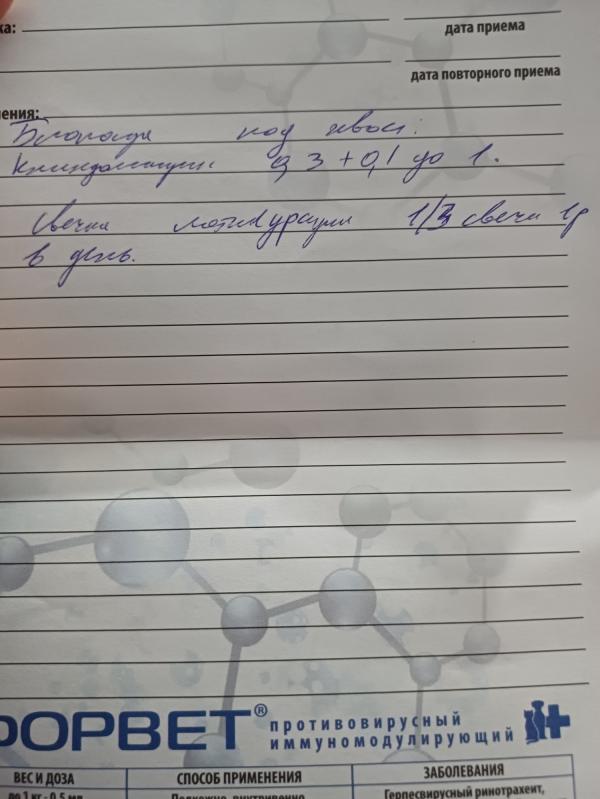 ка:
дата приема
дата повторного приема
ения:
Блокада под хвост:
Клиндамицин 0,3 + 0,1 до 1.
Свечи метилурацил 1/3 свечи 1р
в день.
ФОРВЕТ®
противовирусный
иммуномодулирующий
ВЕС И ДОЗА СПОСОБ ПРИМЕНЕНИЯ ЗАБОЛЕВАНИЯ
до 1 кг - 0,5 мл Подкожно, внутривенно, Герпесвирусный ринотрахеит,